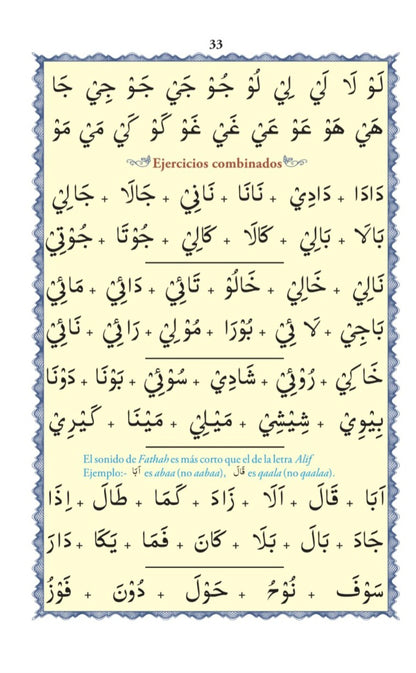 33
لَوْ لَا لَيْ لِيْ لُو جُوْ جَيْ جَوْ جِيْ جَا
هَيْ هَوْ عَوْ عَيْ غَيْ غَوْ كَوْ كَيْ مَيْ مَوْ
Ejercicios combinados
دَادَا + دَادِيْ + نَانَا + نَانِيْ + جَالَا + جَالِيْ
بَالَا + بَالِيْ + كَالَا + كَالِيْ + جُوْتَا + جُوْتِيْ
نَالِيْ + خَالِيْ + خَالُوْ + تَائِيْ + دَائِيْ + مَائِيْ
بَاجِيْ + لَا ئِيْ + بُوْرَا + مُوْلِيْ + رَائِيْ + نَائِيْ
خَاكِيْ + رُوْئِيْ + شَادِيْ + سُوْئِيْ + بَوْنَا + دَوْنَا
بِيْوِيْ + شِيْشِيْ + مَيْلِيْ + مَيْنَا + كَيْرِيْ
El sonido de Fathah es más corto que el de la letra Alif
Ejemplo:- اَبَا es abaa (no aabaa), قَالَ es qaala (no qaalaa).
اَبَا + قَالَ + اَلَا + زَادَ + كَمَا + طَالَ + اِذَا
جَادَ + بَالَ + بَلَا + كَانَ + فَمَا + يَكَا + دَارَ
سَوْفَ + نُوْحُ + حَوْلَ + دُوْنَ + فَوْزُ